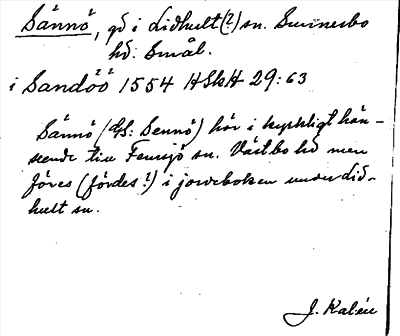 Sännö, gd i Lidhult(?) sn. Sunnerbo
hd: Smål.
i Sandöö 1554 HSkH 29:63
Sännö (GS: Sennö) hör i kyrkligt hän-
seende till Femsjö sn. Västbo hd men
föres (fördes?) i jordeboken under Lid-
hult sn.
J. Kalén